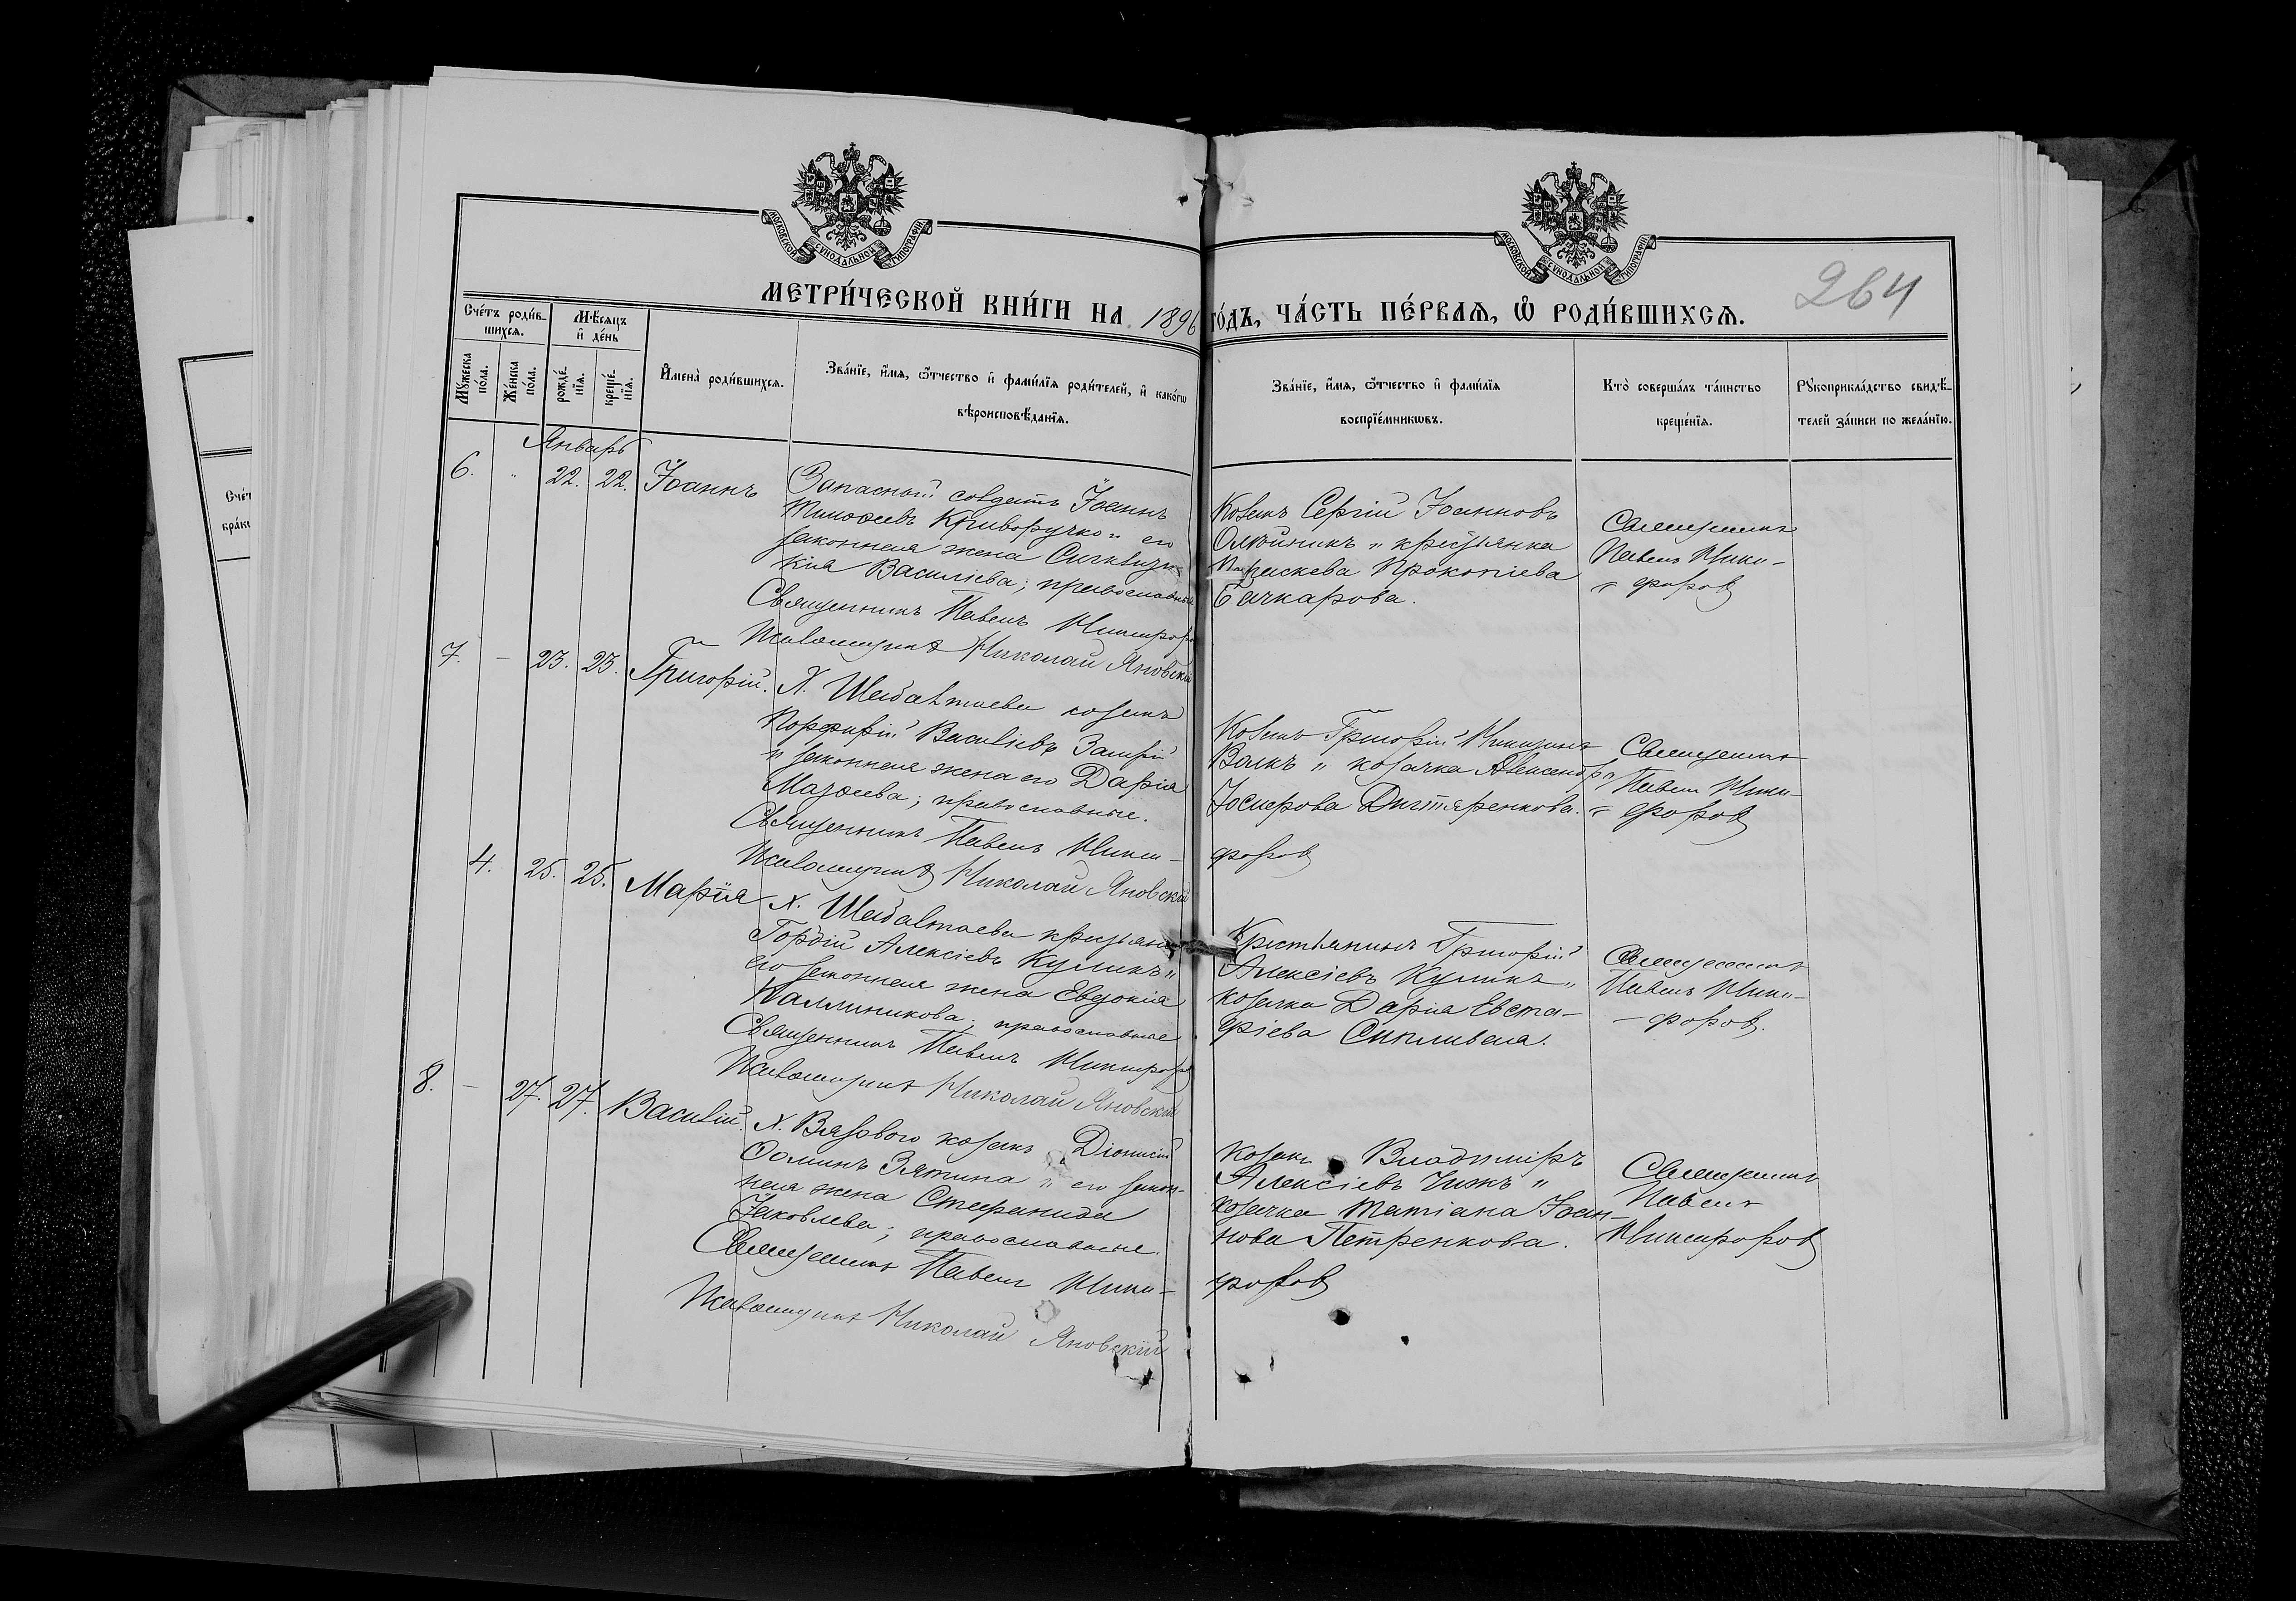 МОСКОВСКОЙ СУНОДАЛЬНОЙ ТИПОГРАФІИ
МОСКОВСКОЙ СУНОДАЛЬНОЙ ТИПОГРАФІИ
264
МЕТРИ́ЧЕСКОЙ КНИ́ГИ НА 1896 ГО́ДЪ, ЧА́СТЬ ПЕ́РВАѦ, Ѡ҆ РОДИ́ВШИХСѦ.
Сче́тъ роди́в-
шихсѧ.
Мѣ́сѧцъ
и҆ де́нь
Мꙋ́жеска
по́ла.
Же́нска
по́ла.
рожде́-
нїѧ.
креще́-
нїѧ.
И҆мена̀ роди́вшихсѧ.
Зва́нїе, и҆́мѧ, ѻ҆́тчество и҆ фами́лїѧ роди́телей, и҆ како́гѡ
вѣроисповѣ́данїѧ.
Зва́нїе, и҆́мѧ, ѻ҆́тчество и҆ фами́лїѧ
воспрїе́мникѡвъ.
Кто̀ соверша́лъ та́инство
креще́нїѧ.
Рꙋкоприкла́дство свидѣ́-
телей за́писи по жела́нїю.
Январь
6. " 22. 22. Іоаннъ
Запасной солдатъ Іоаннъ
Тимоѳеевъ Криворучко и его
законная жена
кія Василіева; православные
Священникъ Павелъ Никифоров
Псаломщикъ Николай Яновскій
Козакъ Сергій Іоанновъ
Олейникъ и крестьянка
Параскева Прокопіева
Бачкарова.
Священникъ
Павелъ Ники-
форов
7. – 23. 23. Григорій.
Х. Шабалтаева козакъ
Порфирій Василіевъ
и законная жена его Дарія
Мазоева; православные.
Священникъ Павелъ Ники-
форов
Псаломщикъ Николай Яновскій
Козакъ Григорій
Валкъ и козачка Александра
Іосифова Дигтяренкова.
Священникъ
Павелъ Ники-
форов
4. 25. 25. Марія
Х. Шабалтаева крестьянинъ
Гордій Алексіевъ Куликъ и
его законная жена Евдокія
Каллиникова; православные
Священникъ Павелъ Никифоров
Псаломщикъ Николай Яновскій
Крестьянинъ Григорій
Алексіевъ Куликъ и
козачка Дарія Евста-
фіева Сипливая.
Священникъ
Павелъ Ники-
форов.
8. – 27. 27. Василій.
Х. Вязового козакъ Діонисій
Ѳоминъ Зятина и его закон-
ная жена Стефанида
Іаковлева; православные.
Священникъ Павелъ Ники-
форов
Псаломщикъ Николай Яновскій
Козакъ Владимиръ
Алексіевъ Чижъ и
козачка Татіана Іоан-
нова Петренкова.
Священникъ
Павелъ
Никифоров
Сче́т
кра́ко